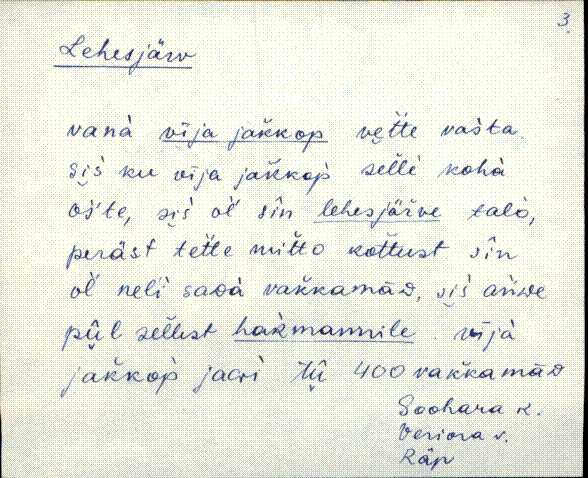 3.
Lehesjärv
vanà vīja jak̆kop vet̆te vas̆ta.
siś ku vīja jak̆kop̀ sel̆lè kohà
oś̆te, siś oĺ sîn lehesjäŕve talò,
peräst tet̆te mit̆to kot̆tust sîn
oĺ neĺi sadà vak̆kamād, siś ańde
pǖl sel̆lest hak̀mannile vījà
jak̆kop̀ jaɢì tǖ 400 vak̆kamād
Soohara k.
Veriora v.
Räp